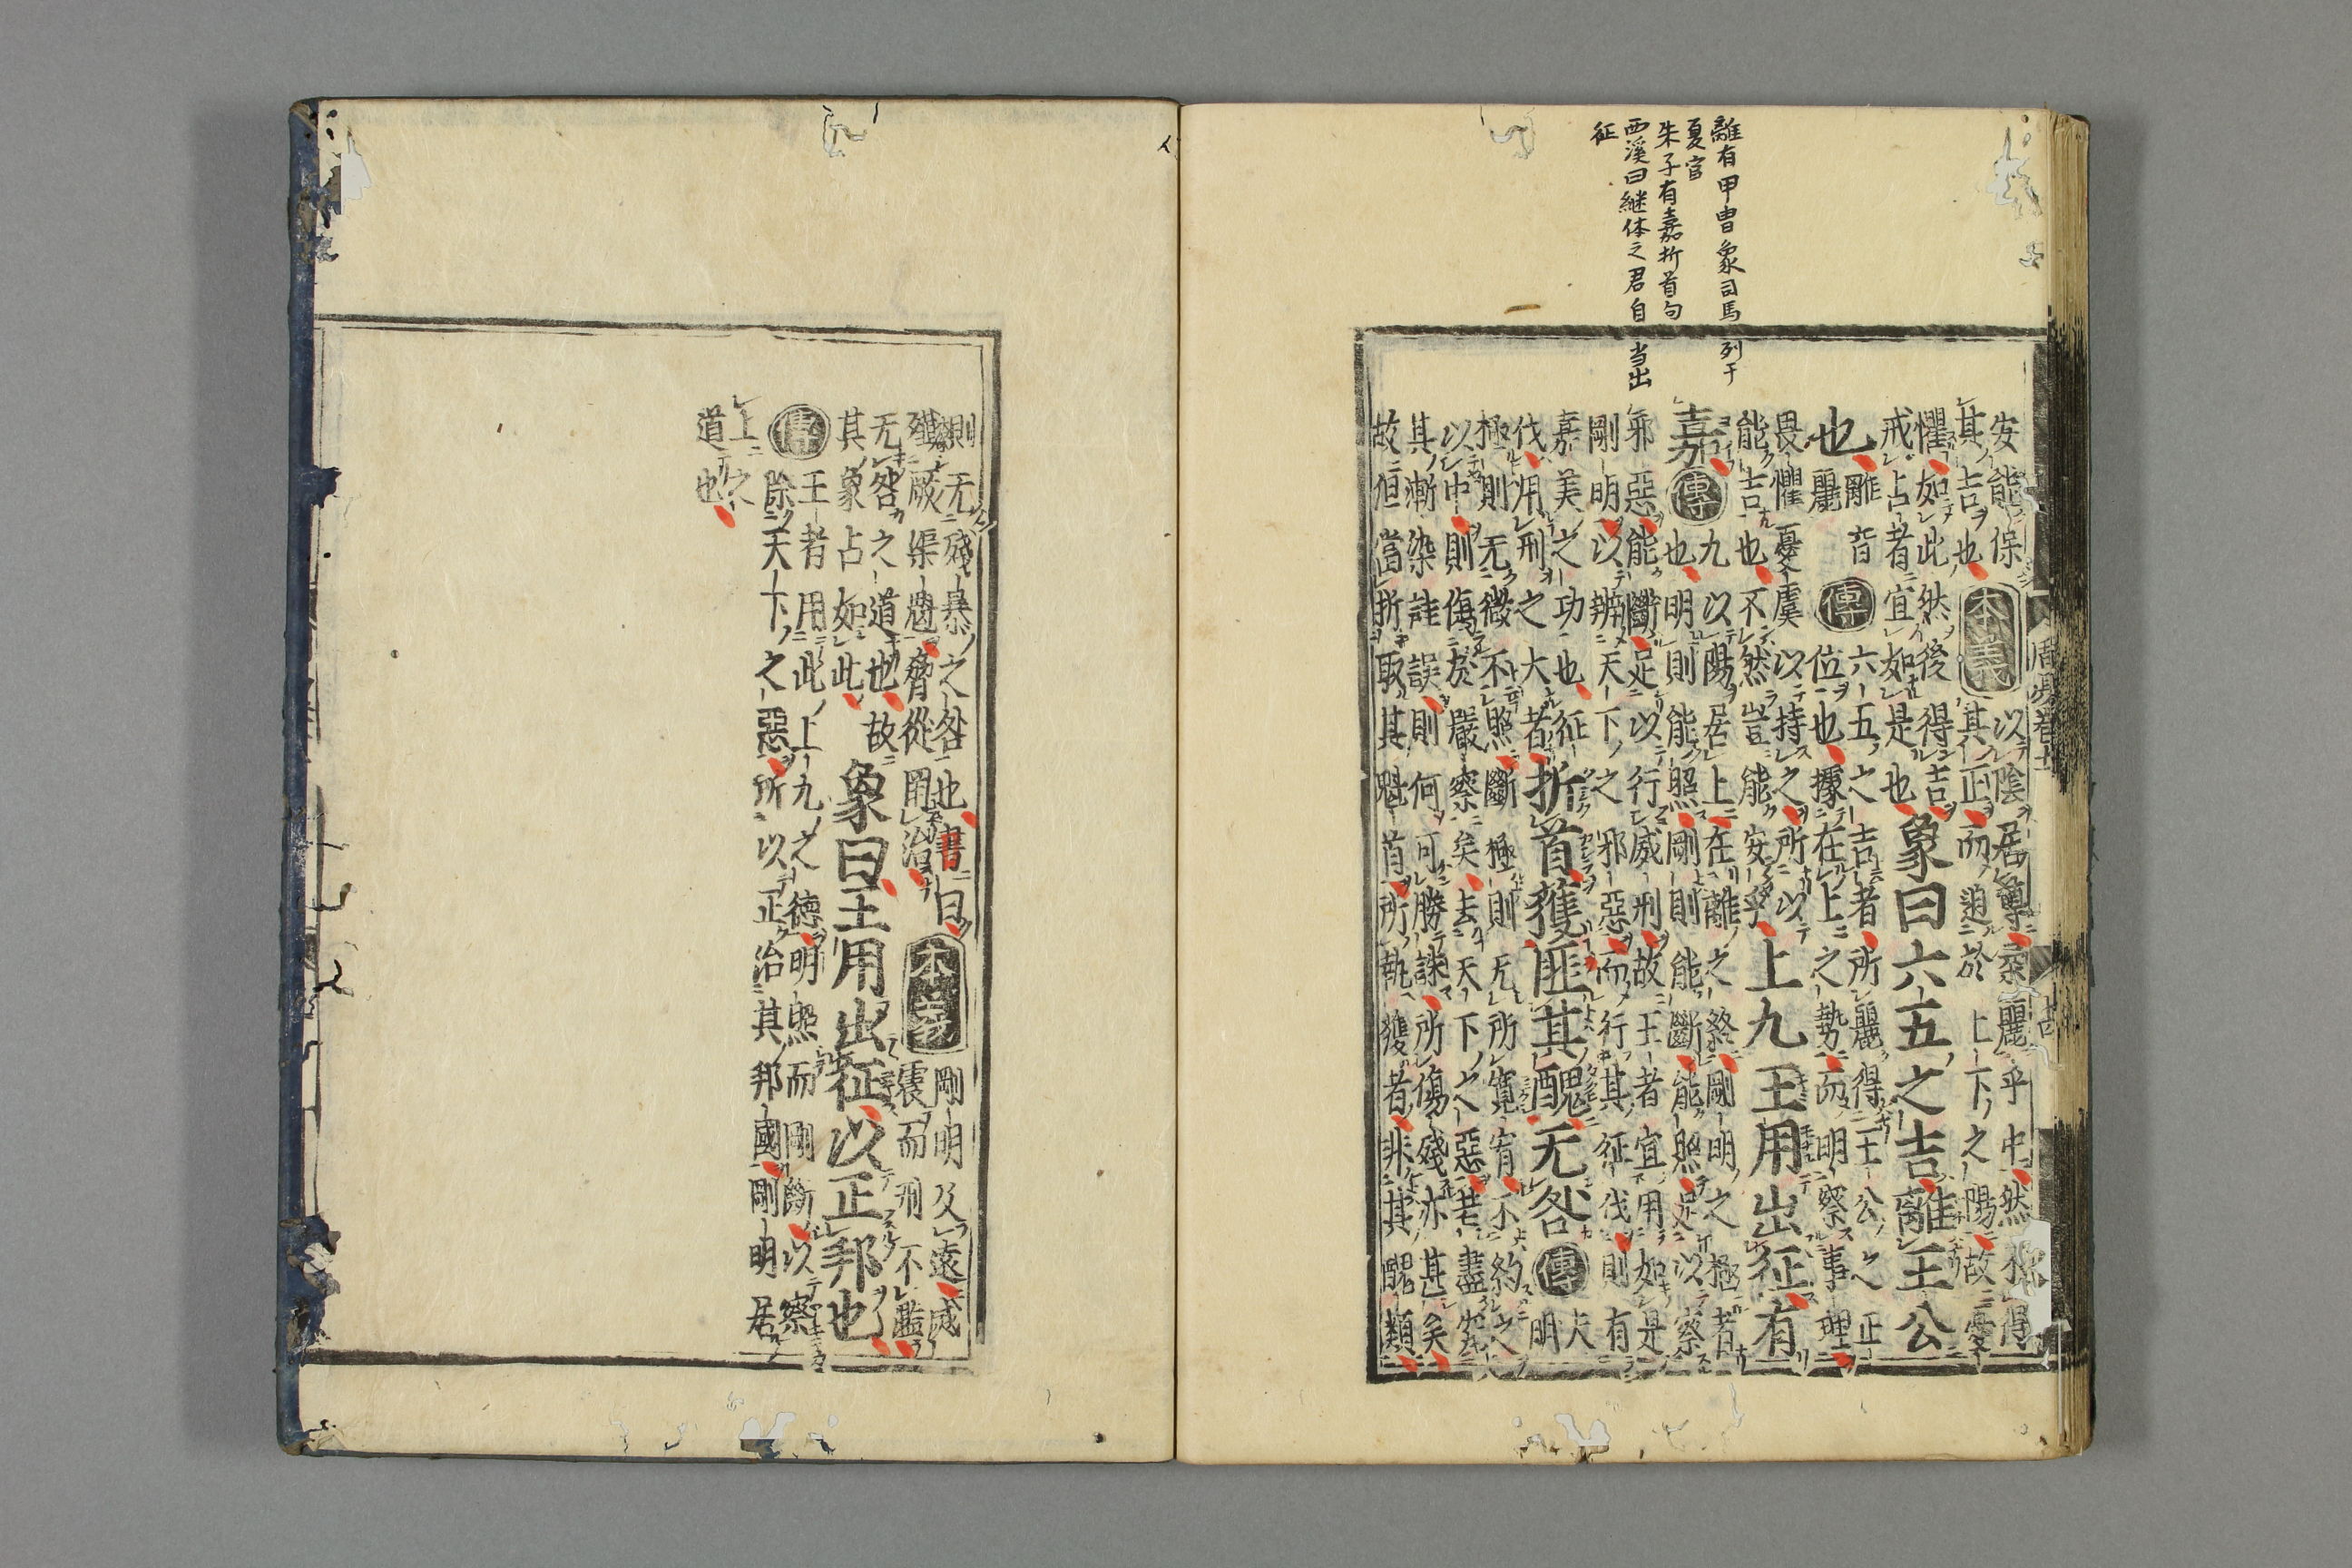 離有甲冑象司馬列于
夏官
朱子有嘉折首句
西溪曰継体之君自当出
征
安能保
其吉也
本義
以陰居尊柔麗乎中然不得
其正而迫於上下之陽故憂
懼如此然後得吉
戒占者宜如是也
象曰六五之吉離王公
也
離音
麗
傳
六五之吉者所麗得王公之正
位也據在上之勢而明察事理
畏懼憂虞以持之所以
能吉也不然豈能安乎
上九王用出征有
嘉
傳
九以陽居上在離之終剛明之極者
也明則能照剛則能斷能照足以察
邪惡能斷足以行威刑故王者宜用如是
剛明以辨天下之邪惡而行其征伐則有
嘉美之功也征
伐用刑之大者
折首獲匪其醜无咎
傳
夫
明
極則无微不照斷極則无所寬宥不約之
以中則傷於嚴察矣去天下之惡若盡究
其漸染詿誤則何可勝誅所傷殘亦甚矣
故但當折取其魁首所執獲者非其醜類
則无殘暴之咎也書曰
殲厥渠魁脅從罔治
本義
剛明及遠威
震而刑不濫
无咎之道也故
其象占如此
象曰王用出征以正邦也
傳
王者用此上九之德明照而剛斷以察
除天下之惡所以正治其邦國剛明居
上之
道也